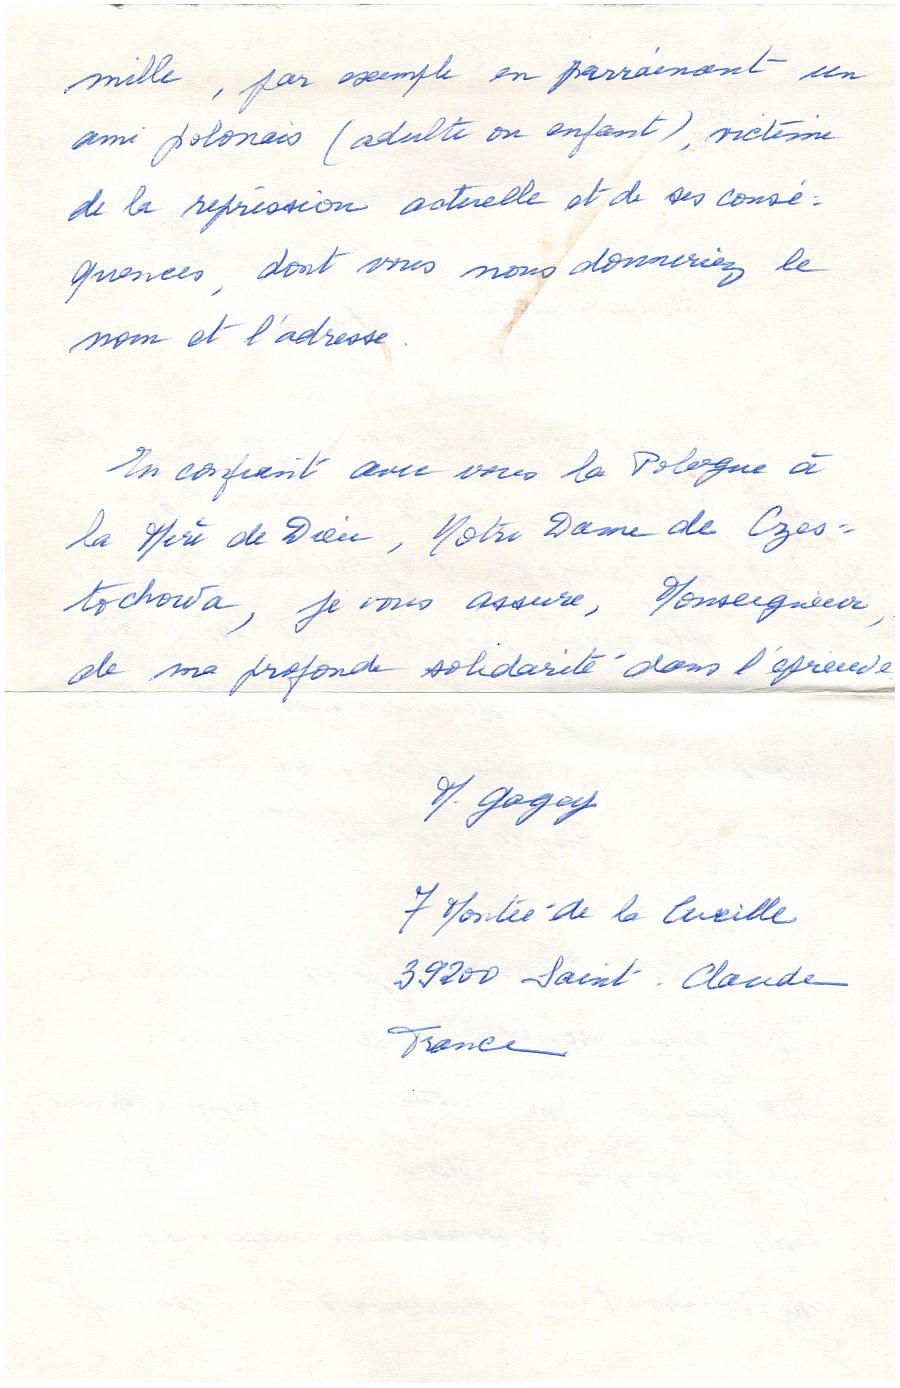 mille, par exemple en parrainant un
ami polonais (adulte ou enfant), victime
de la répression actuelle et de ses consé-
quences, dont vous nous donneriez le
nom et l'adresse.
En confiant avec vous la Pologne à
la Mère de Dieu, Notre Dame de Czes-
tochowa, je vous assure, Monseigneur,
de ma profonde solidarité dans l'épreuve.
M. Gogey
7 Montée de la Cueille
39200 Saint-Claude
France